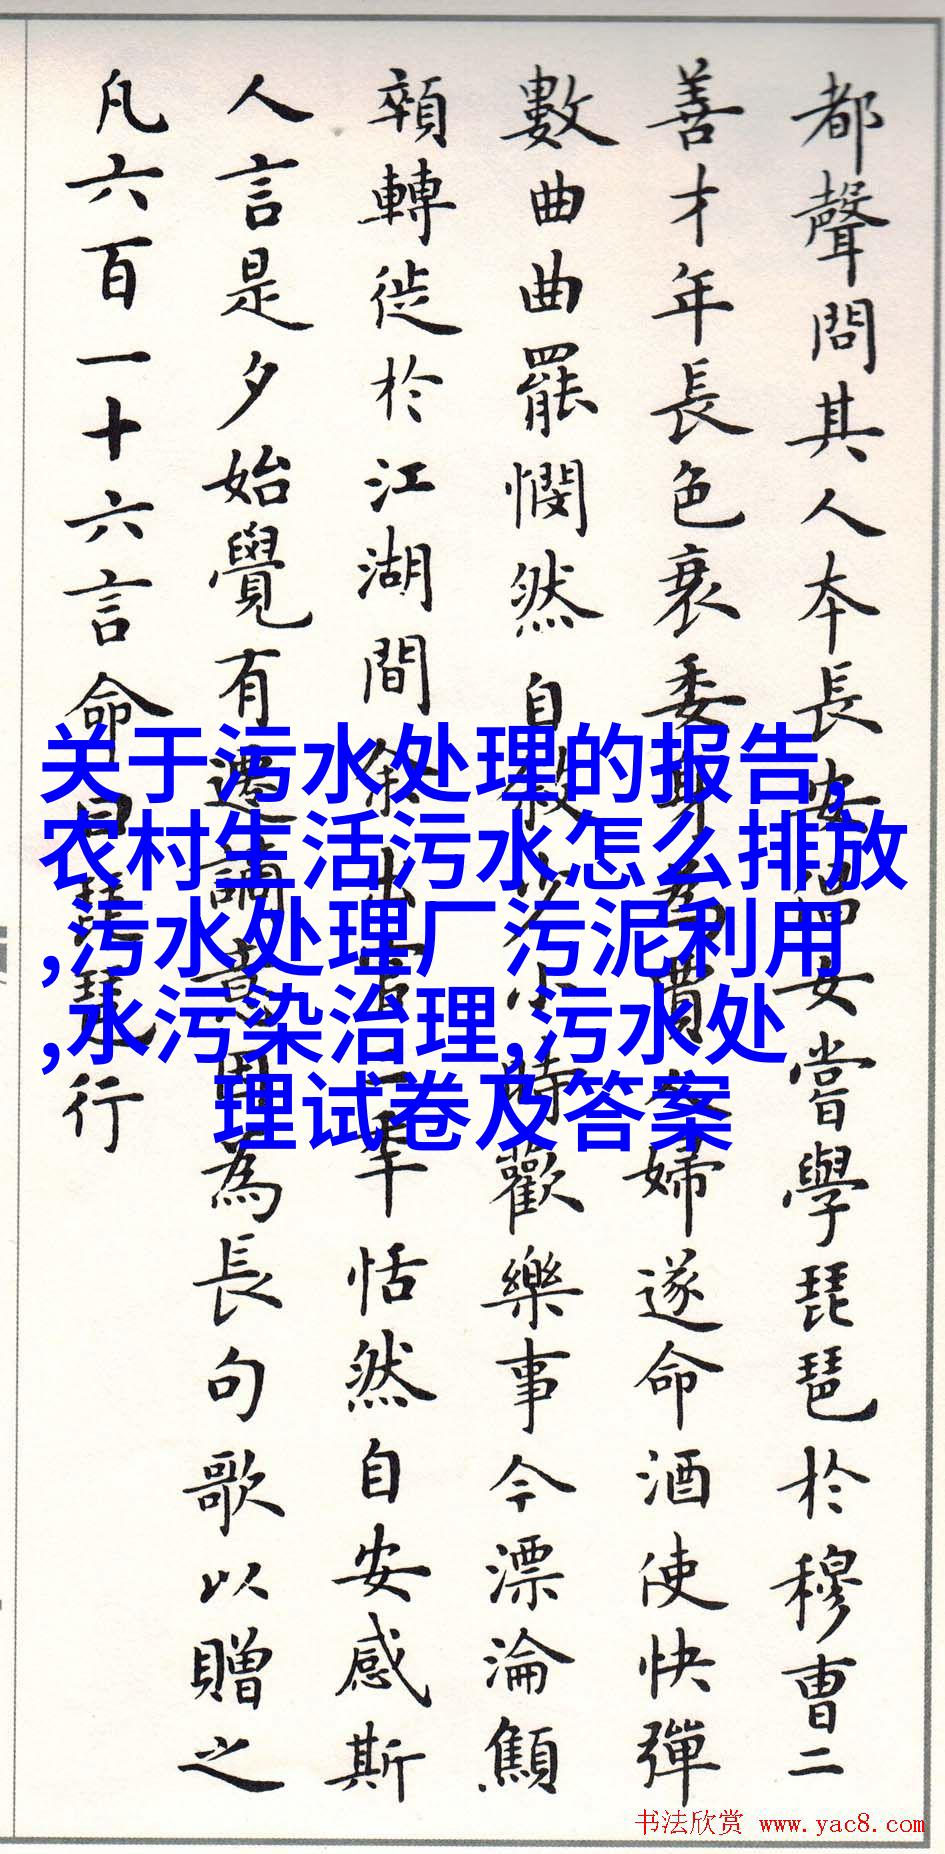 都聲問其人本長安倡女嘗學琵琶於穆曹二
善才年長色衰委身為賈人婦遂命酒使快彈
數曲曲罷憫然自敘少小時歡樂事今漂淪顦
顇轉徙於江湖間余出官二年恬然自安感斯
人言是夕始覺有遷謫意因為長句歌以贈之
凡六百一十六言命曰琵琶行
关于污水处理的报告,
农村生活污水怎么排放
,污水处理厂污泥利用
,水污染治理,污水处
理试卷及答案
书法欣赏 www.yac8.com